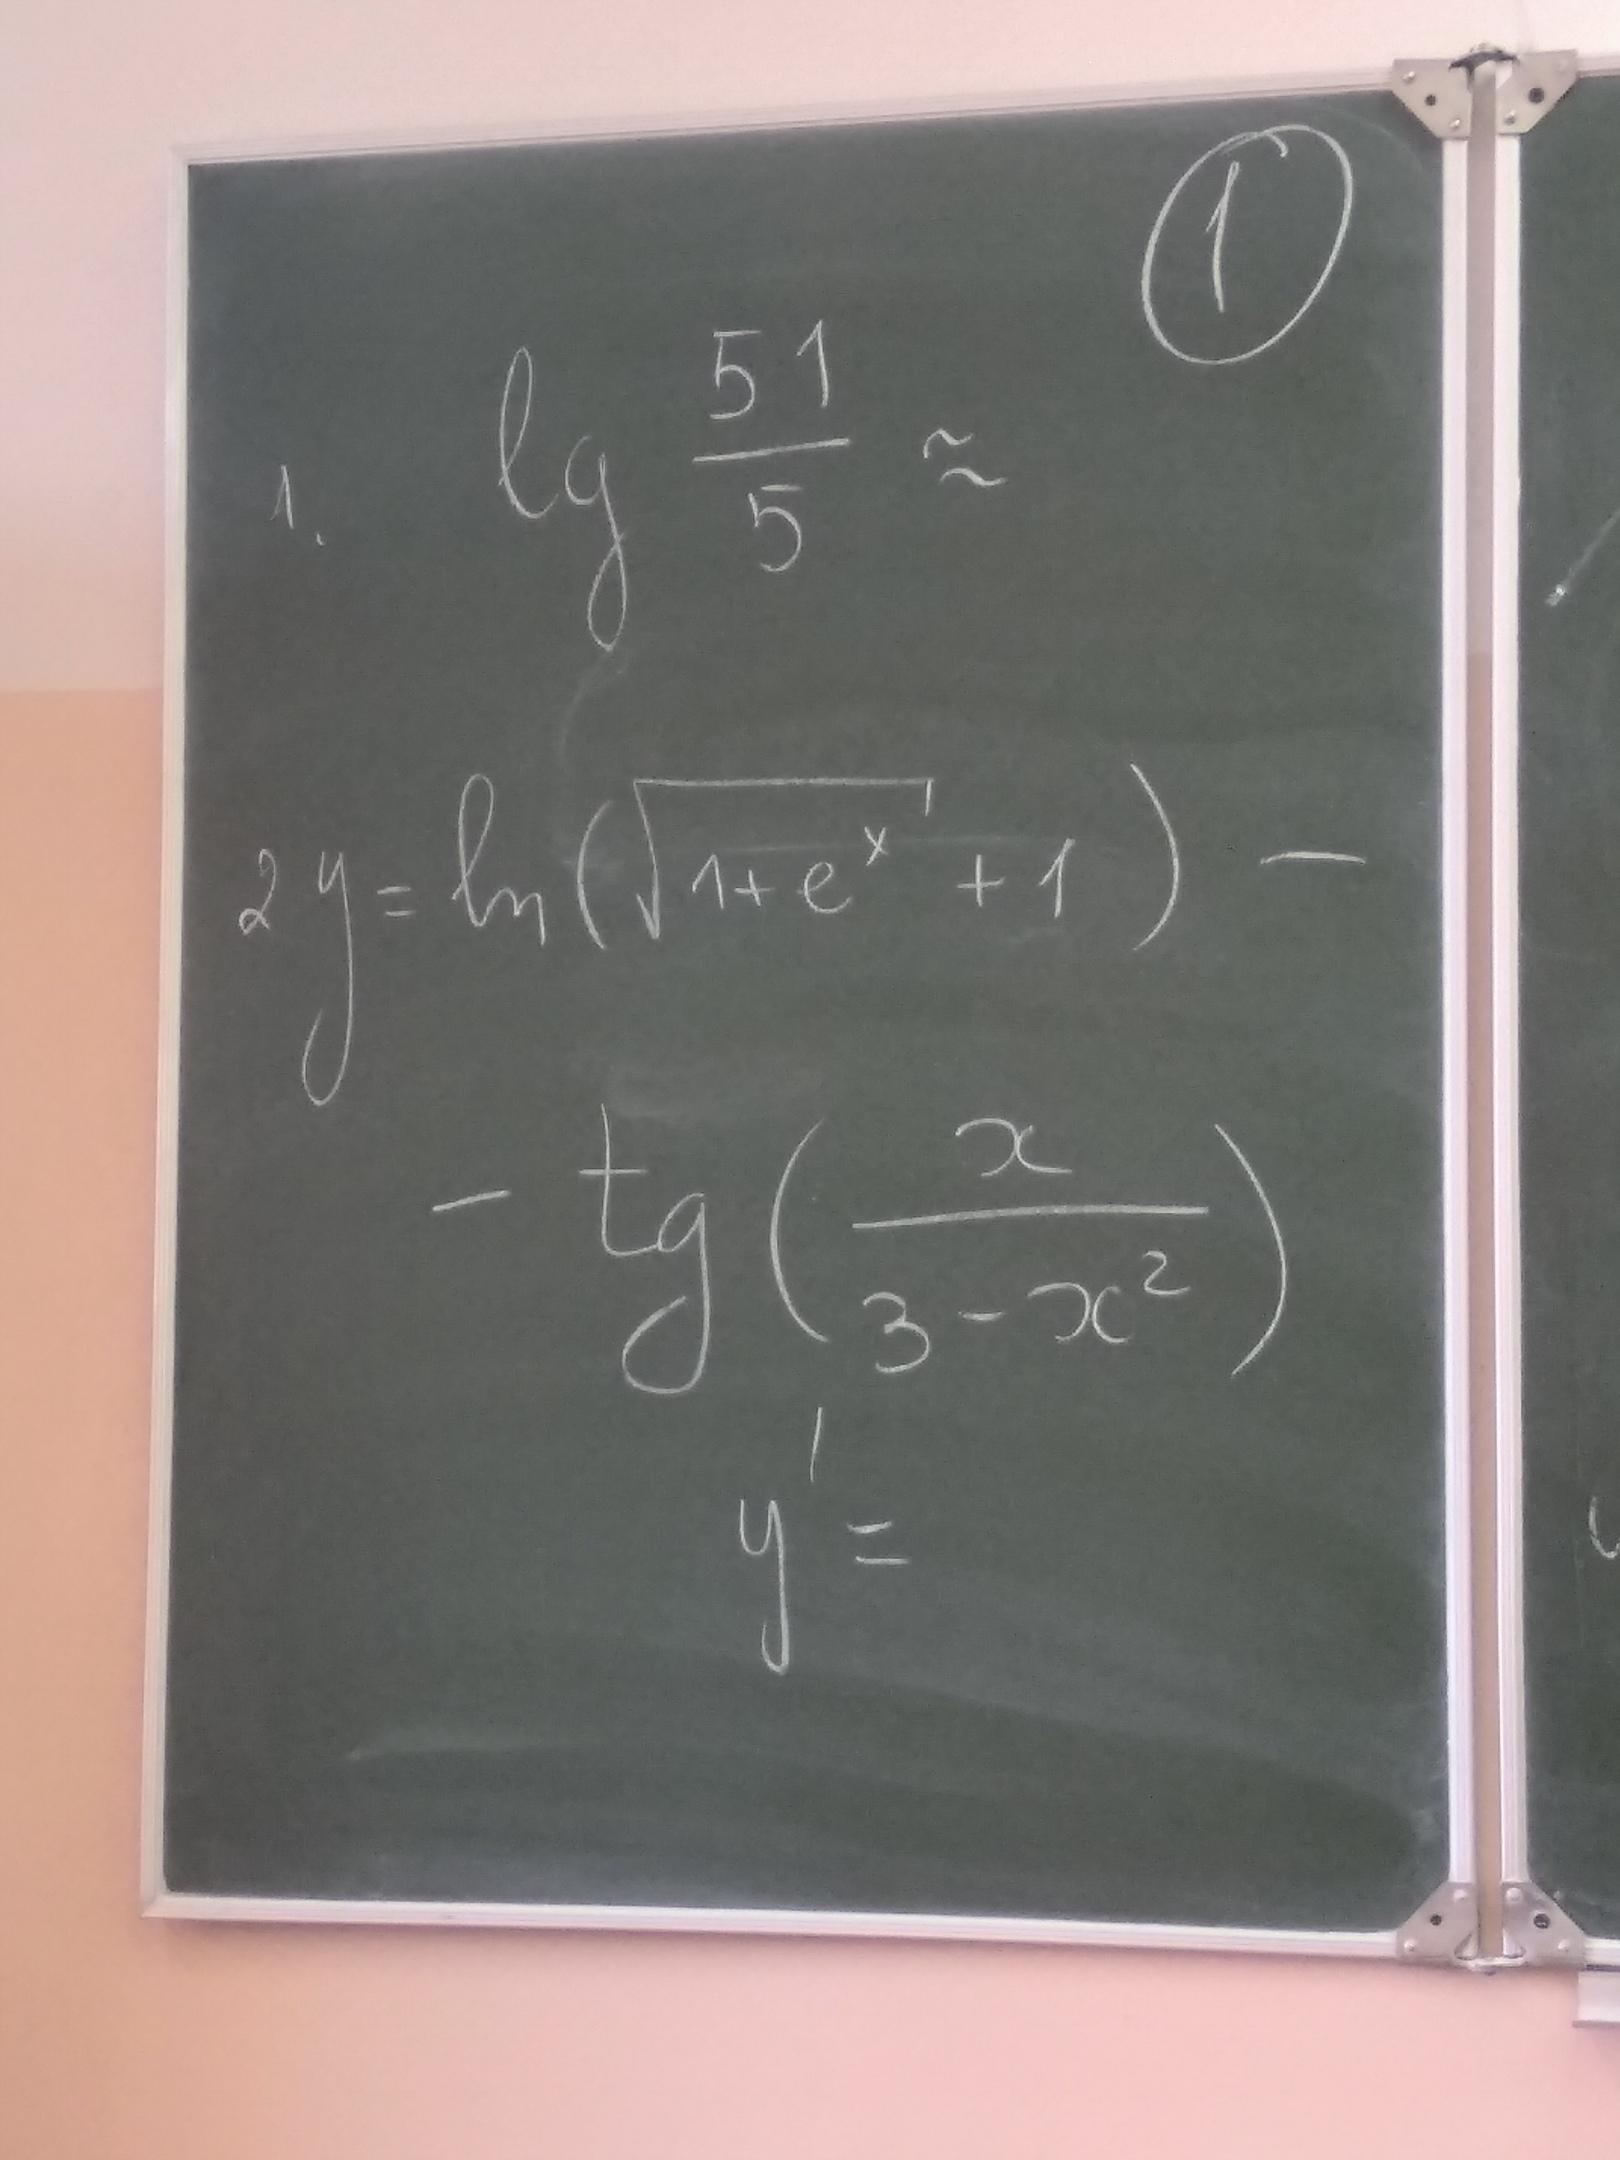 1
1. lg 51/5 ≈
2 y = ln(√(1+eˣ) + 1) −
− tg(x/(3−x²))
y' =